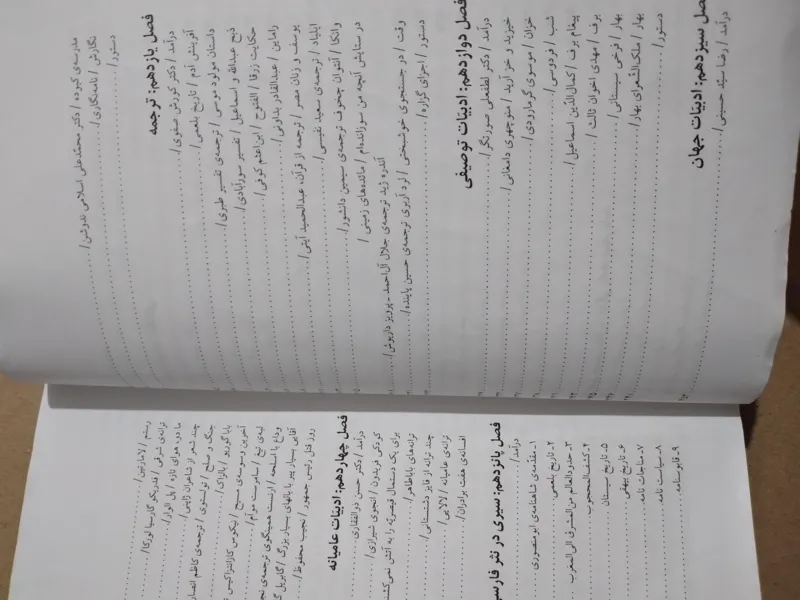 مدرسه‌ی کبوده / دکتر محمّدعلی اسلامی ندوشن /
نگارش / نامه‌نگاری /
دستور /
فصل یازدهم: ترجمه
درآمد / دکتر کورش صفوی /
آفرینش آدم / تاریخ بلعمی /
داستان مولود موسی / ترجمه‌ی تفسیر طبری /
ذبح عبدالله و اسماعیل / تفسیر سورآبادی /
حکایت زرقا / الفتوح / ابن‌اعثم کوفی /
راماین / عبدالقادر بداونی /
یوسف و زنان مصر / ترجمه از قرآن، عبدالحمید آیتی /
ایلیاد / ترجمه‌ی سعید نفیسی /
وانکا / آنتوان چخوف ترجمه‌ی سیمین دانشور /
در ستایش آنچه من سوزانده‌ام / مائده‌های زمینی /
آندره ژید ترجمه‌ی جلال آل‌احمد ـ پرویز داریوش /
وقت / در جستجوی خوشبختی / لرد آویبوری ترجمه‌ی حسین پاینده /
دستور / اجزای گزاره /
فصل دوازدهم: ادبیات توصیفی
درآمد / دکتر لطفعلی صورتگر /
خیزید و خز آرید / منوچهری دامغانی /
خزان / موسوی گرمارودی /
شب / فردوسی /
پیغام برف / کمال‌الدّین اسماعیل /
برف / مهدی اخوان ثالث /
بهار / فرخی سیستانی /
بهار / ملک‌الشّعرای بهار /
دستور /
فصل سیزدهم: ادبیات جهان
درآمد / رضا سیّد حسینی /
رستم / لامارتین /
ترانه‌ی شرقی / فدریکو گارسیا لورکا /
مادوه هوای تازه / پل الوار /
چند شعر از شاعران ژاپنی /
جنگ و صلح / تولستوی / ترجمه‌ی کاظم انصار
بابا گوریو / بالزاک /
آخرین وسوسه‌ی مسیح / نیکوس کازانتزاکیس
لبه‌ی تیغ / سامرست موام /
وداع با اسلحه / ارنست همینگوی ترجمه‌ی نج
آقایی بسیار پیر با بالهای بسیار بزرگ / گابریل گ
روز قتل رئیس جمهور / نجیب محفوظ /
فصل چهاردهم: ادبیات عامیانه
درآمد / دکتر حسن ذوالفقاری
کودکی فریدون / انجوی شیرازی /
برای یک دستمال قیصریّه را به آتش نمی‌کشند
ترانه‌های باباطاهر /
چند ترانه از فایز دشتستانی /
ترانه‌ی عامیانه / لالایی /
افسانه‌ی هفت برادران /
فصل پانزدهم: سیری در نثر فارسی
درآمد /
۱ـ مقدّمه‌ی شاهنامه‌ی ابومنصوری
۲ـ تاریخ بلعمی
۳ـ حدودالعالم من‌المشرق الی المغرب
۴ـ کشف‌المحجوب
۵ـ تاریخ سیستان
۶ـ تاریخ بیهقی
۷ـ مناجات نامه
۸ـ سیاست نامه
۹ـ قابوسنامه